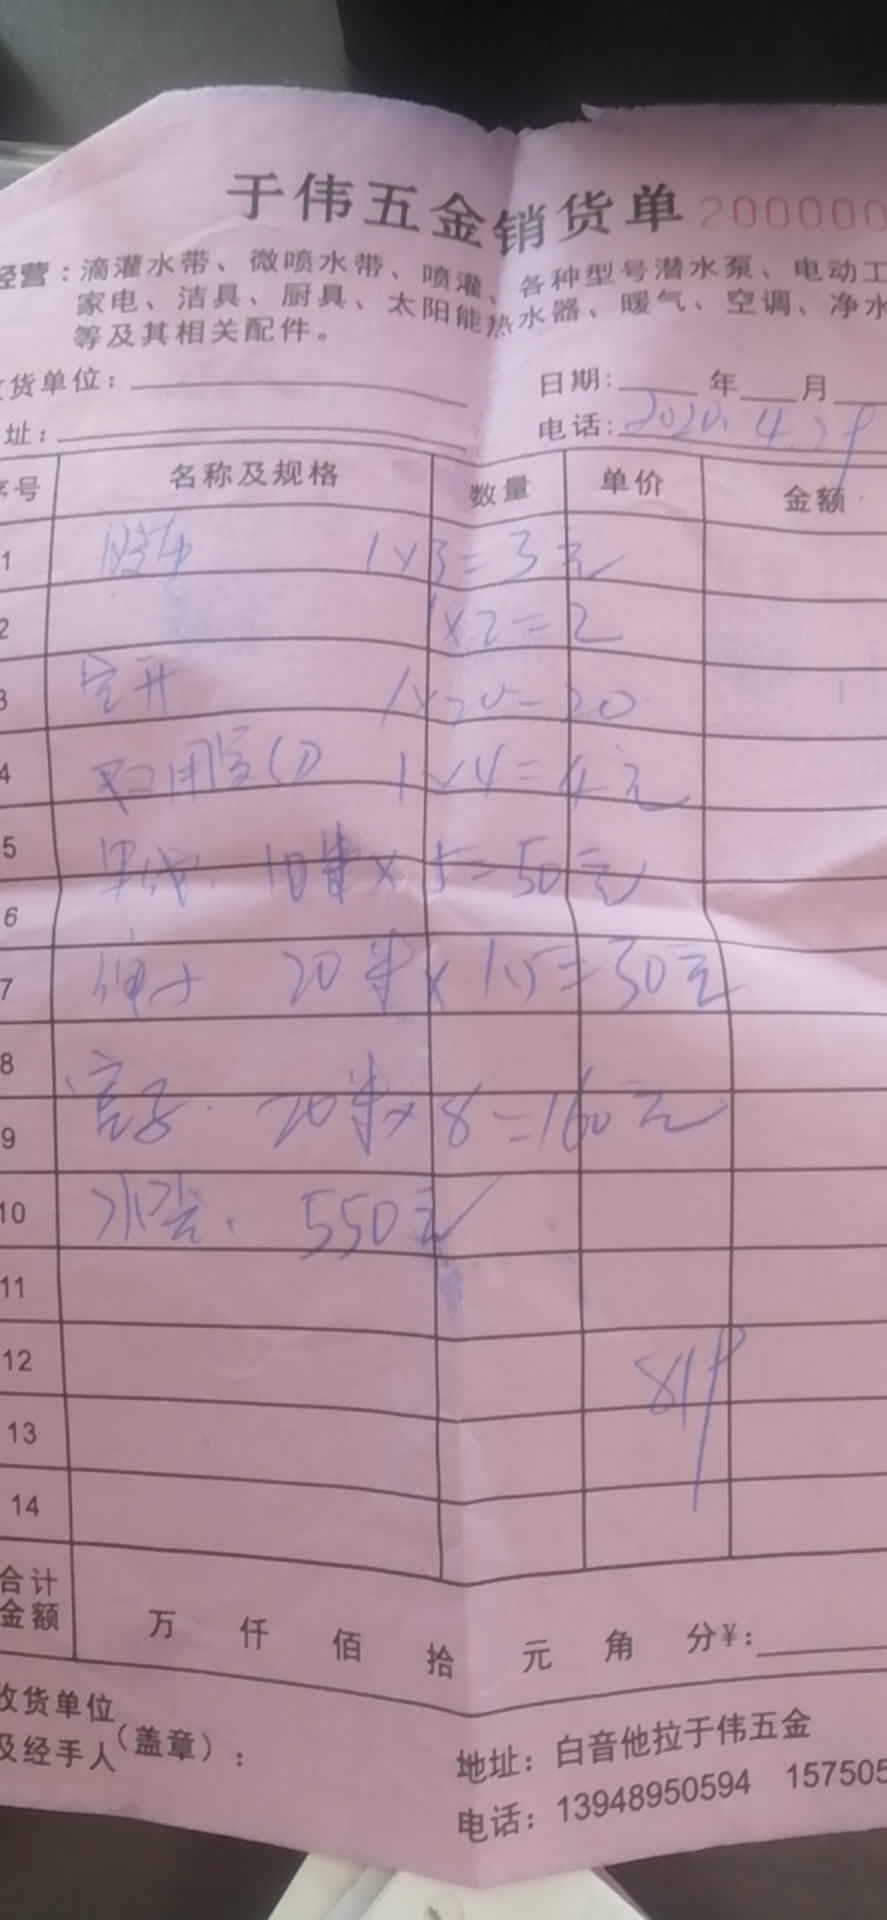 于伟五金销货单 200000
经营：滴灌水带、微喷水带、喷灌、各种型号潜水泵、电动工
家电、洁具、厨具、太阳能热水器、暖气、空调、净水
等及其相关配件。
收货单位：
日期: 年 月
址：
电话: 2020. 4.29
序号 名称及规格 数量 单价 金额
1 胶布 1×3=3元
2 1×2=2
3 空开 1×20=20
4 1×4=4元
5 单线. 10米×5=50元
6
7 绳子 20米×1.5=30元
8
9 管子. 20米×8=160元
10 水泵. 550元
11
12 819
13
14
合计金额 万 仟 佰 拾 元 角 分¥:
收货单位
及经手人(盖章)：
地址：白音他拉于伟五金
电话：13948950594 157505